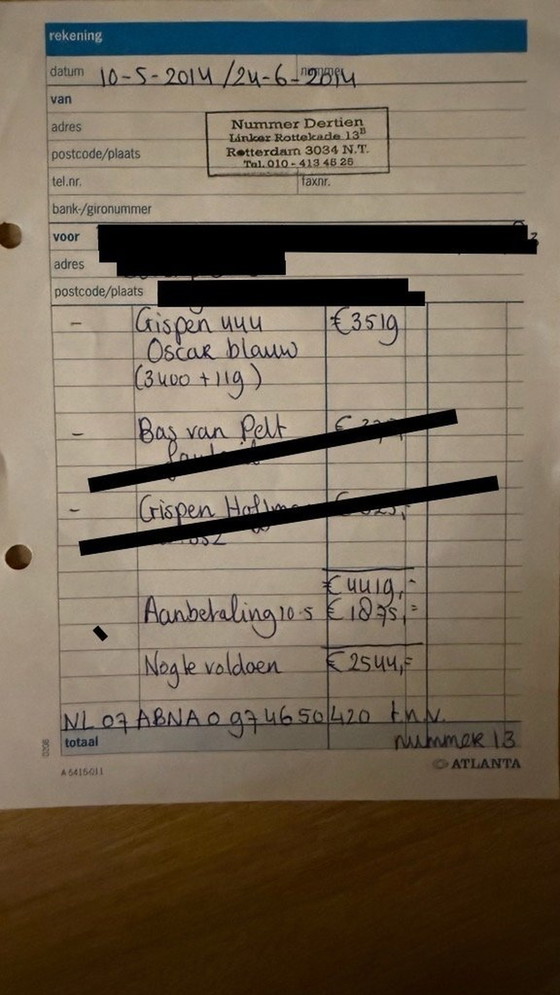 rekening
datum 10-5-2014 / 24-6-2014 nummer
van
adres
postcode/plaats
Nummer Dertien
Linker Rottekade 13B
Rotterdam 3034 N.T.
Tel. 010 - 413 46 26
tel.nr. faxnr.
bank-/gironummer
voor
adres
postcode/plaats
- Gispen 444 €3519
Oscar blauw
(3400 + 119)
- Bas van Pelt €
- Gispen
€4419,-
Aanbetaling 10-5 €1875,=
Nog te voldoen €2544,=
NL 07 ABNA 0 974650420 t.n.v.
totaal nummer 13
0208
A 6415-011
ATLANTA